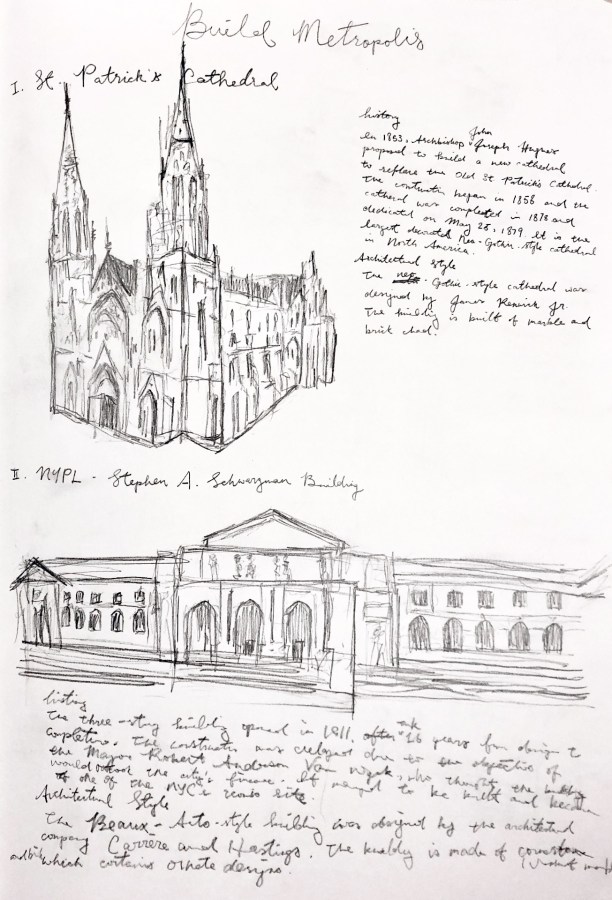 Build Metropolis
I. St. Patrick's Cathedral
history
John
In 1853, Archbishop Joseph Hughes
proposed to build a new cathedral
to replace the Old St Patrick's Cathedral.
The began in 1858 and the
cathedral was completed in 1878 and
dedicated on May 25, 1879. It is the
largest decorated Neo-Gothic-style cathedral
in North America.
Architectural Style
The Gothic-style cathedral was
designed by James Renwick Jr.
The building is built of marble and
brick
II. NYPL - Stephen A. Schwarzman Building
history
The three-story building opened in 1911, after 16 years from design to
completion. The was due to the objection of
the Mayor Robert Anderson Van Wyck, who thought the building
would the city's finance. It managed to be built and became
one of the NYC's iconic site.
Architectural Style
The Beaux-Arts-style building was designed by the architectural
company Carrere and Hastings. The building is made of
which contains ornate designs.